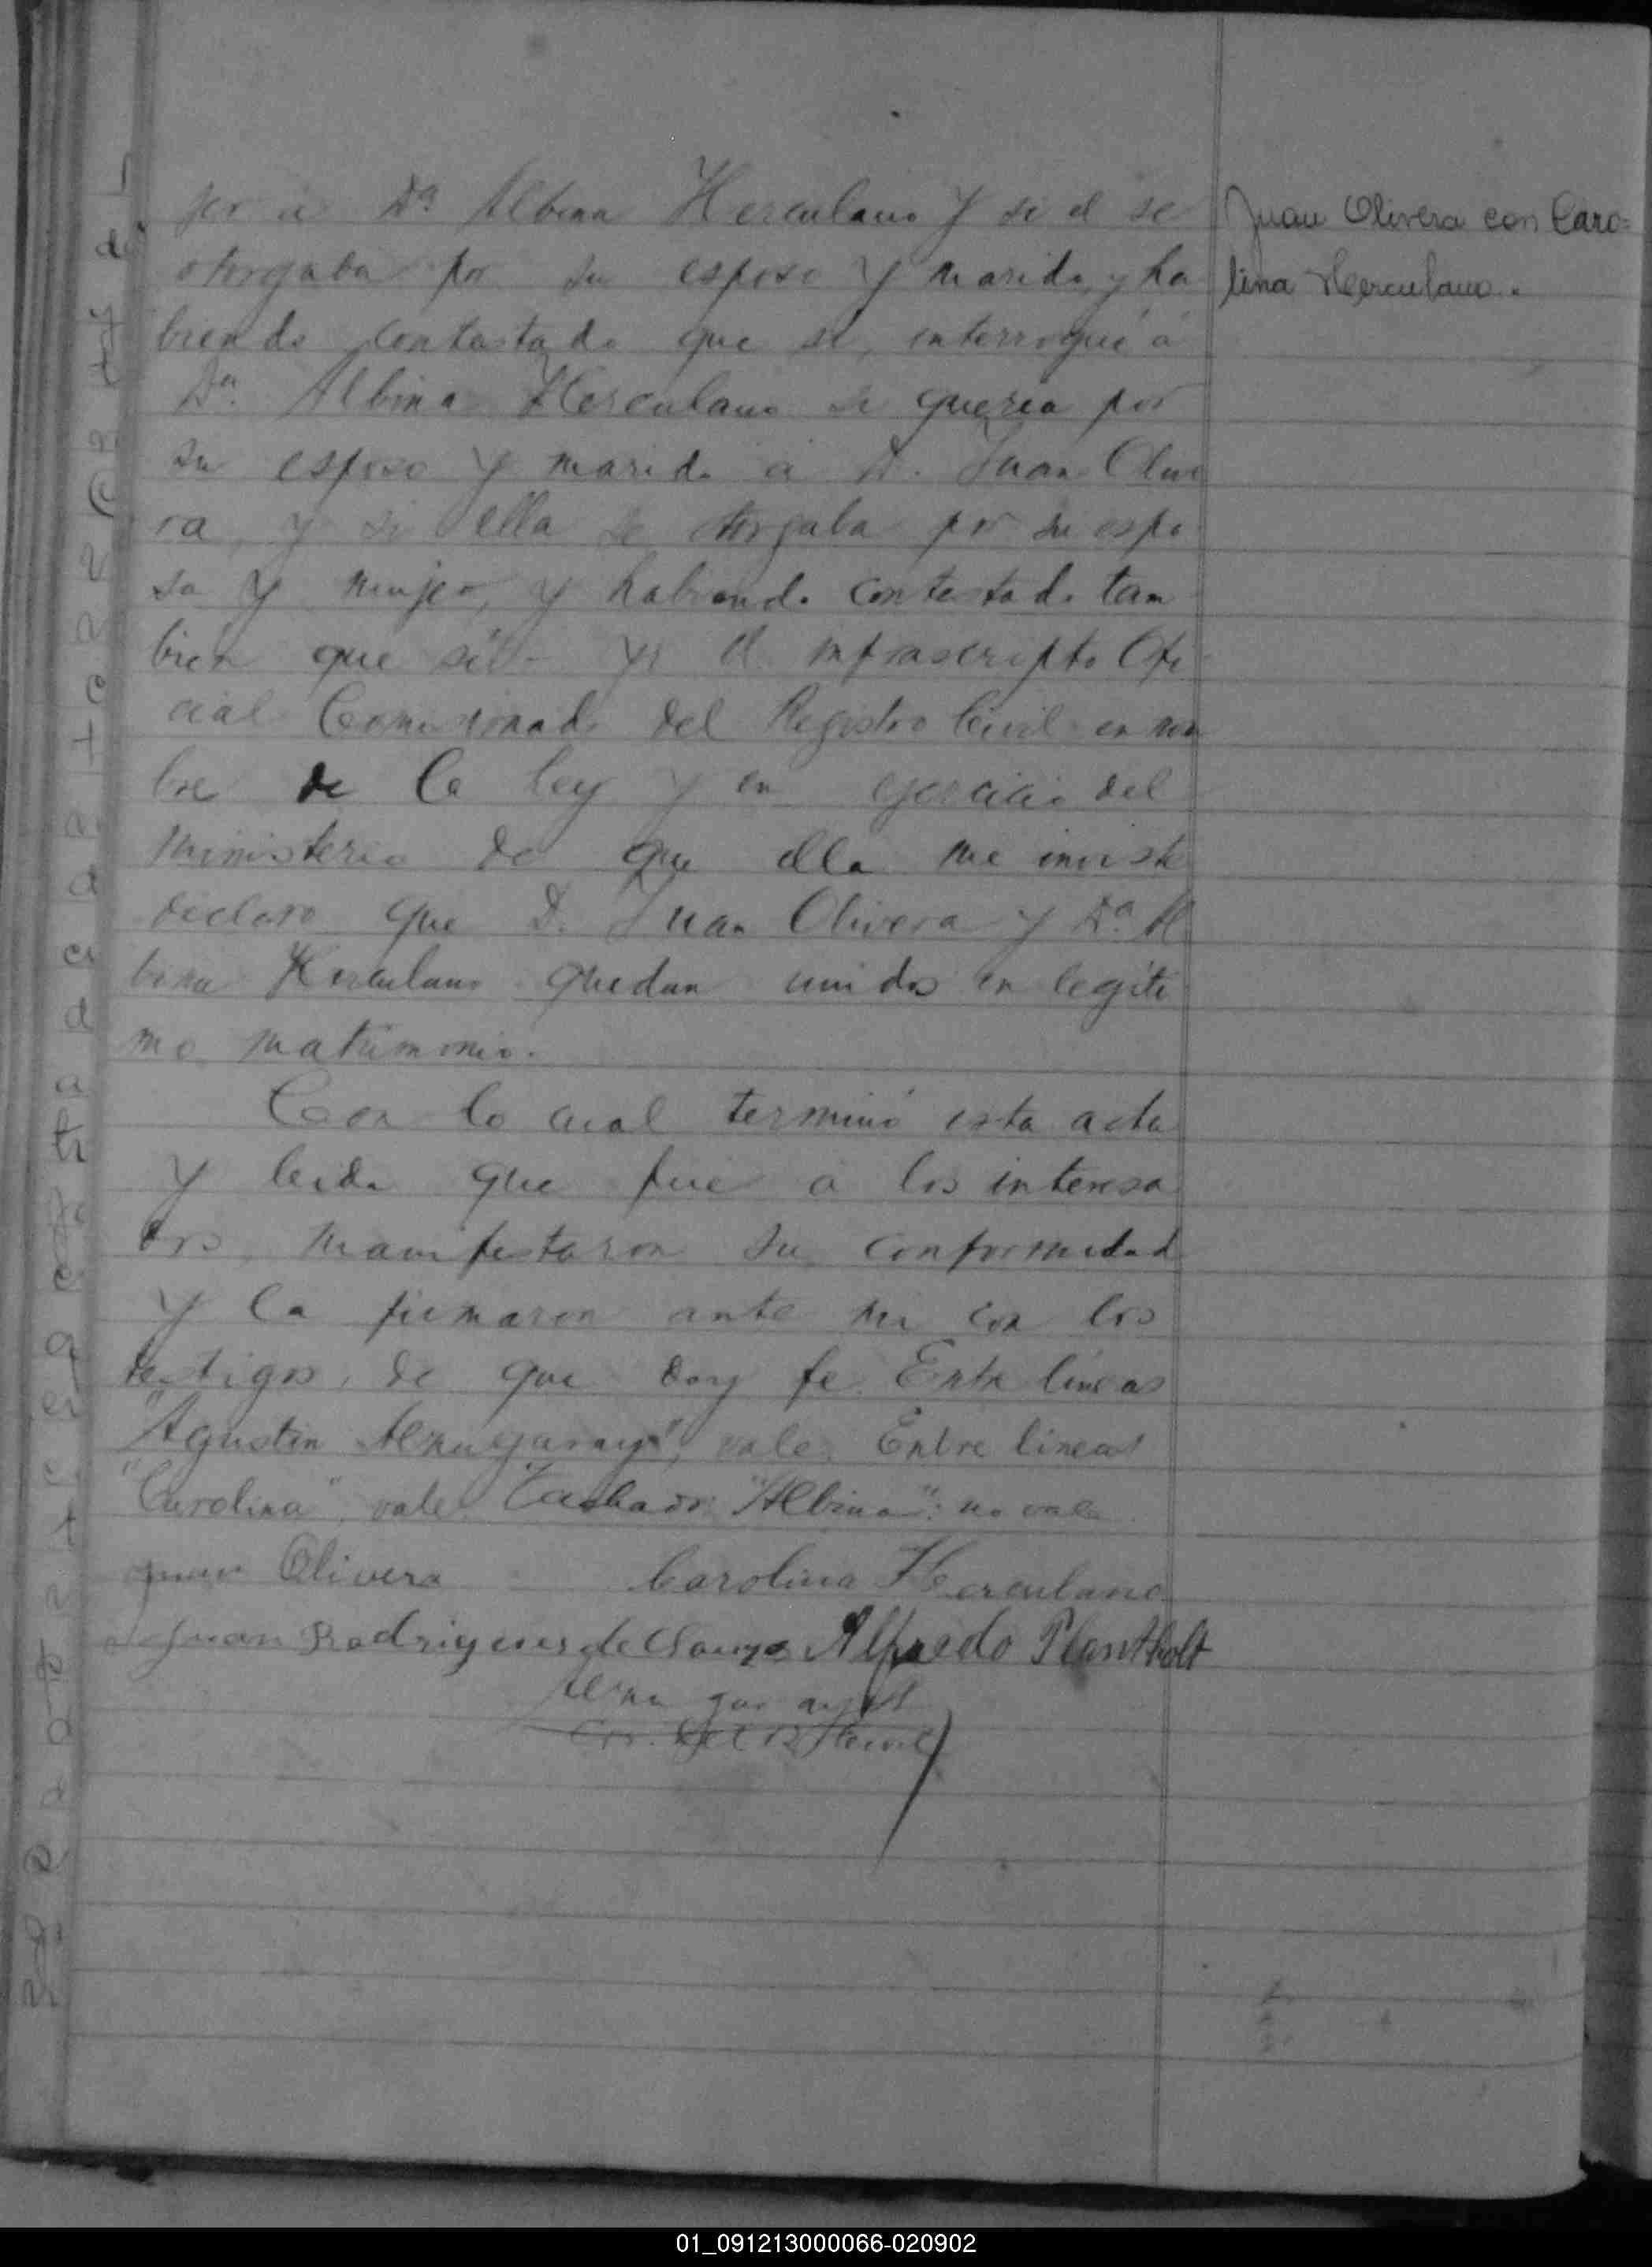 jer á Dª Albina Herculano y si el se
otorgaba por su esposo y marido, y ha
biendo contestado que sí, interrogué á
Dª. Albina Herculano si queria por
su esposo y marido á D. Juan Olive
ra, y si ella se otorgaba por su espo
sa y mujer, y habiendo contestado tam
bien que sí - yo el infrascripto Ofi
cial Comisionado del Registro Civil en nom
bre de la ley y en ejercicio del
ministerio de que ella me inviste
declaro que D. Juan Olivera y Dª. Al
bina Herculano quedan unidos en legíti
mo matrimonio.
Con lo cual terminó esta acta
y leida que fué a los interesa
dos, manifestaron su conformidad
y la firmaron ante mi con los
testigos, de que doy fe. Entre lineas
"Agustin", vale. Entre lineas
"Carolina" vale. Tachado: "Albina": no vale
Juan Olivera Carolina Herculano
Juan Rodrigues de Alfredo Plantholt
Juan Olivera con Caro=
lina Herculano.
01_091213000066-020902